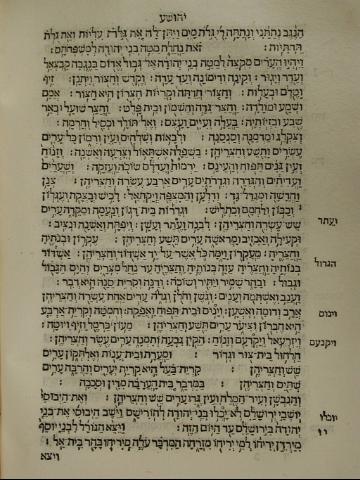 יהושע
הנגב נתתני ונתתה לי גלת מים ויתן לה את גלת עליות ואת גלת
תחתיות: זאת נחלת מטה בני יהודה למשפחתם:
ויהיו הערים מקצה למטה בני יהודה אל גבול אדום בנגבה קבצאל
ועדר ויגור: וקינה ודימונה ועדעדה: וקדש וחצור ויתנן: זיף
וטלם ובעלות: וחצור חדתה וקריות חצרון היא חצור: אמם
ושמע ומולדה: וחצר גדה וחשמון ובית פלט: וחצר שועל ובאר
שבע ובזיותיה: בעלה ועיים ועצם: ואלתולד וכסיל וחרמה:
וצקלג ומדמנה וסנסנה: ולבאות ושלחים ועין ורמון כל ערים
עשרים ותשע וחצריהן: בשפלה אשתאול וצרעה ואשנה: וזנוח
ועין גנים תפוח והעינם: ירמות ועדלם שוכה ועזקה: ושערים
ועדיתים והגדרה וגדרתים ערים ארבע עשרה וחצריהן: צנן
וחדשה ומגדל גד: ודלען והמצפה ויקתאל: לכיש ובצקת ועגלון
: וכבון ולחמס וכתליש: וגדרות בית דגון ונעמה ומקדה ערים
שש עשרה וחצריהן: לבנה ועתר ועשן: ויפתח ואשנה ונציב:
ועתר
וקעילה ואכזיב ומראשה ערים תשע וחצריהן: עקרון ובנתיה
וחצריה: מעקרון וימה כל אשר על יד אשדוד וחצריהן: אשדוד
בנותיה וחצריה עזה בנותיה וחצריה עד נחל מצרים והים הגבול
הגדול
וגבול: ובהר שמיר ויתיר ושוכה: ודנה וקרית סנה היא דבר:
וענב ואשתמה וענים: וגשן וחלן וגלה ערים אחת עשרה וחצריהן:
ארב ודומה ואשען: וינים ובית תפוח ואפקה: וחמטה וקרית ארבע
וינום
היא חברון וציער ערים תשע וחצריהן: מעון כרמל וזיף ויוטה:
ויזרעאל ויקדעם וזנוח: הקין גבעה ותמנה ערים עשר וחצריהן:
ויקנעם
חלחול בית צור וגדור: ומערת ובית ענות ואלתקון ערים
שש וחצריהן: קרית בעל היא קרית יערים והרבה ערים
שתים וחצריהן: במדבר בית הערבה מדין וסככה:
והנבשן ועיר המלח ועין גדי ערים שש וחצריהן: ואת היבוסי
יושבי ירושלם לא יכלו בני יהודה להורישם וישב היבוסי את בני
יהודה בירושלם עד היום הזה: ויצא הגורל לבני יוסף
מירדן יריחו למי יריחו מזרחה המדבר עלה מיריחו בהר בית אל:
ויצא